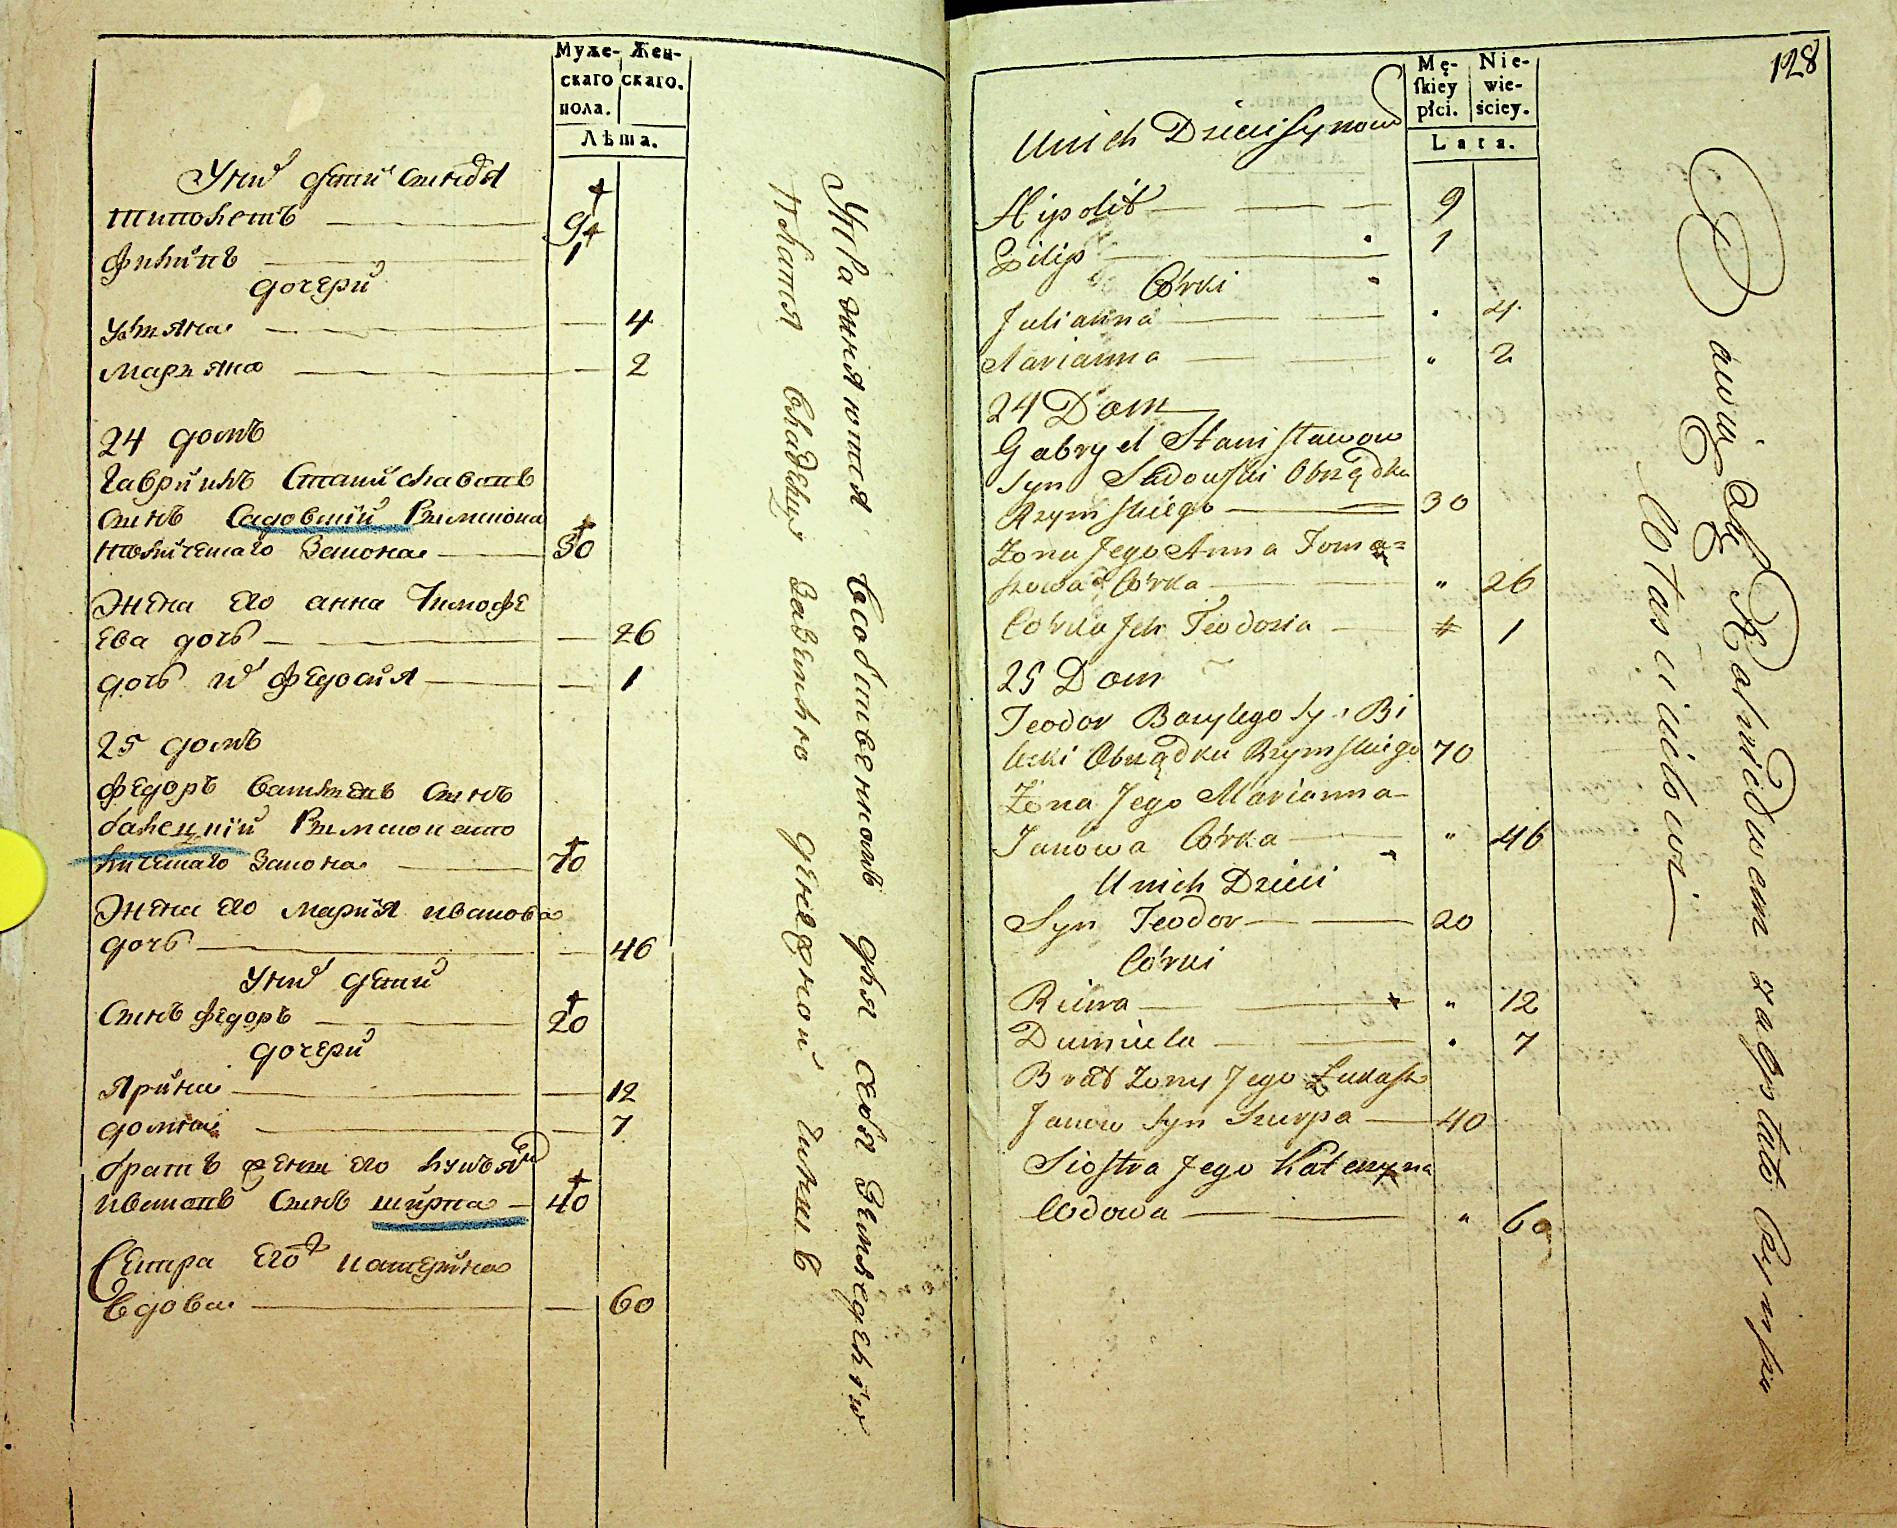 Муже-
скаго
пола.
Жен-
скаго.
Лѣта.
Униⷯ дети синовя
типолетъ 9
филипъ 1
дочери
уляна 4
маряна 2
24 домъ
Гаврийлъ Станиславовъ
синъ Садовский Римскока
толическаго Закона 30
Жена его анна Тимофе
ева дочь 26
дочь иⷯ федосия 1
25 домъ
федоръ василевъ синъ
билецкий Римскокато
лическаго Закона 70
Жена его мария иванова
дочь 46
Униⷯ дети
синъ федоръ 20
дочери
Ярина 12
домна 7
братъ жены его лукьян
ивановъ синъ шурпа 40
Сестра его катерина
вдова 60
Упражняются собственнымъ для себя земледелием
Платя Владельцу
128
Mę-
skiey
płci.
Nie-
wie-
ściey.
Lata.
Unich Dzieci Synow
Hipolit 9
Filip 1
Córki
Julianna 4
Marianna 2
24 Dom
Gabryel Stanisławow
Syn Sadowski Obrządku
Rzymskiego 30
Żona Jego Anna Toma=
szowa Córka 26
Córka Jch Teodozia 1
25 Dom
Teodor Bazylego Sy. Bi
lecki Obrządku Rzymskiego 70
Żona Jego Marianna
Janowa Córka 46
Unich Dzieci
Syn Teodor 20
Córki
Reina 12
Dumicela 7
Brat Żony Jego Łukasz
Janow Syn Szurpa 40
Siostra Jego Katerzyna
Wdowa 60
Bawią Się Rolnictwem